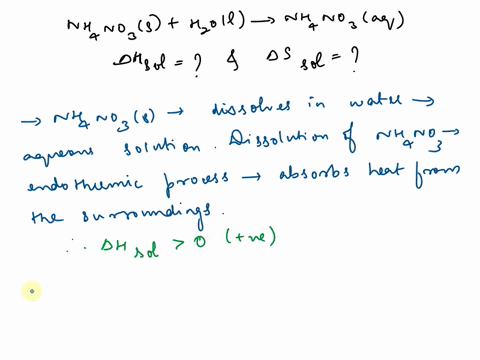 NH₄NO₃(s) + H₂O(l) → NH₄NO₃(aq)
ΔHsol = ? & ΔS sol = ?
→ NH₄NO₃(s) → dissolves in water →
aqueous solution. Dissolution of NH₄NO₃ →
endothermic process → absorbs heat from
the surroundings.
∴ ΔHsol > 0 (+ve)